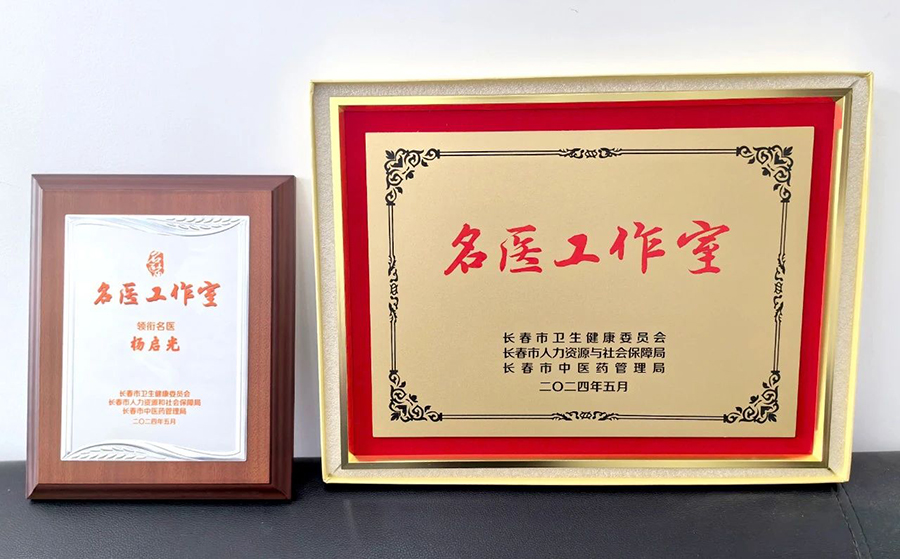 名医工作室
领衔名医
杨启光
长春市卫生健康委员会
长春市人力资源和社会保障局
长春市中医药管理局
二〇二四年五月
名医工作室
长春市卫生健康委员会
长春市人力资源与社会保障局
长春市中医药管理局
二〇二四年五月